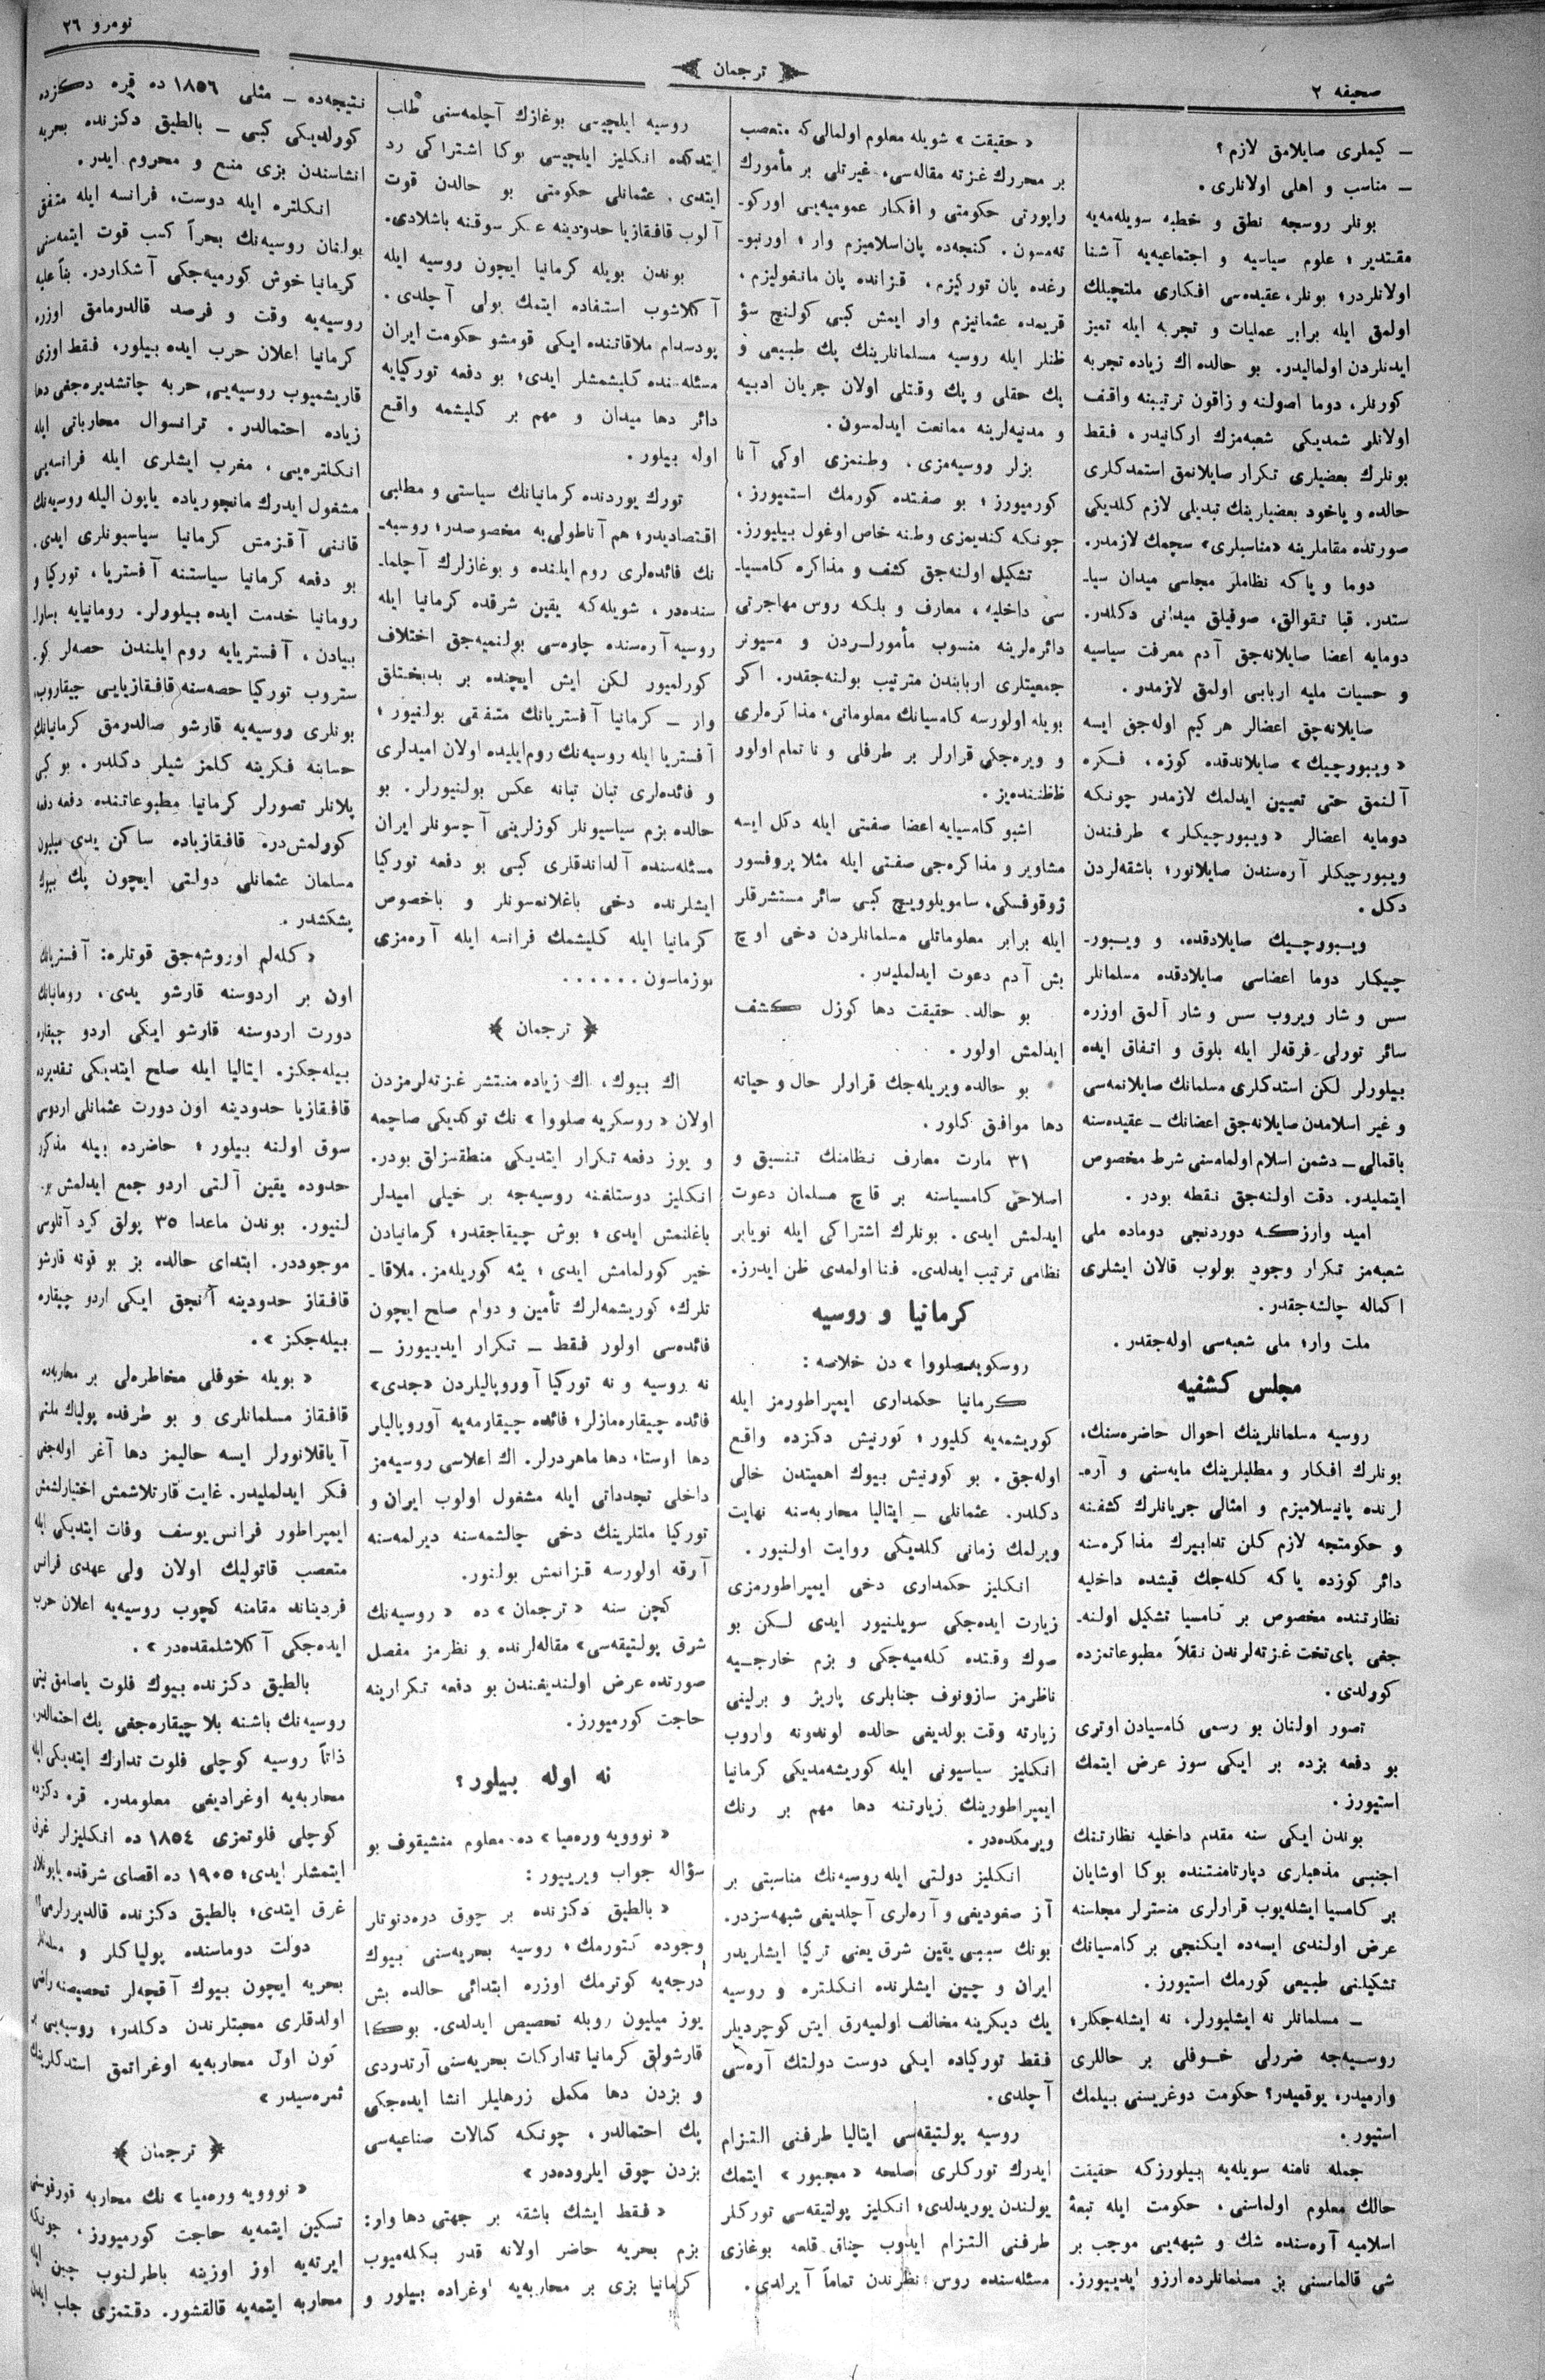 صحیفه ٢
ترجمان
نومرو ٢٦
ـ كیملری صایلامق لازم ؟
ـ مناسب و اهلی اولانلری .
بونلر روسجه نطق و خطبه سویله‌مه‌یه
مقتدیر ؛ علوم سیاسیه و اجتماعیه‌یه آشنا
اولانلردر ؛ بونلر ، عقیده‌سی افكاری ملتچیلك
اولمق ایله برابر عملیات و تجربه ایله تمیز
ایدنلردن اولمالیدر. بو حالده اك زیاده تجربه
كورنلر ، دوما اصولنه و زاقون ترتیبنه واقف
اولانلر شمدیكی شعبه‌مزك اركانیدر ، فقط
بونلرك بعضیلری تكرار صایلانمق استمدكلری
حالده و یاخود بعضیلرینك تبدیلی لازم كلدیكی
صورتده مقاملرینه «مناسبلری» سچمك لازمدر.
دوما و یا كه نظاملر مجلسی میدان سیا-
ستدر. قبا تقوالق ، صوفیلق میدانی دكلدر.
دومایه اعضا صایلانه‌جق آدم معرفت سیاسیه
و حسیات ملیه اربابی اولمق لازمدر.
صایلانه‌چق اعضالر هر كیم اوله‌جق ایسه
«ویبورچیك» صایلاندقده كوزه ، فكره
آلنمق حتی تعیین ایدلمك لازمدر چونكه
دومایه اعضالر «ویبورچیكلر» طرفندن
ویبورچیكلر آره‌سندن صایلانور ؛ باشقه‌لردن
دكل .
ویبورچیك صایلادقده ، و ویبور-
چیكلر دوما اعضاسی صایلادقده مسلمانلر
سس و شار ویروب سس و شار آلمق اوزره
سائر تورلی فرقه‌لر ایله بلوق و اتفاق ایده
بیلورلر لكن استدكلری مسلمانك صایلانمه‌سی
و غیر اسلامدن صایلانه‌جق اعضانك ـ عقیده‌سنه
باقمالی ـ دشمن اسلام اولمامه‌سنی شرط مخصوص
ایتملیدر. دقت اولنه‌جق نقطه بودر .
امید وارزكه دوردنجی دوماده ملی
شعبه‌مز تكرار وجود بولوب قالان ایشلری
اكماله چالشه‌جقدر.
ملت وار ؛ ملی شعبه‌سی اوله‌جقدر .
مجلس كشفیه
روسیه مسلمانلرینك احوال حاضره‌سنك ،
بونلرك افكار و مطلبلرینك مایه‌سنی و آره-
لرنده پانیسلامیزم و امثالی جریانلرك كشفنه
و حكومتجه لازم كلن تدابیرك مذاكره‌سنه
دائر كوزده یا كه كله‌جك قیشده داخلیه
نظارتنده مخصوص بر كامسیا تشكیل اولنه-
جغی پای‌تخت غزته‌لرندن نقلاً مطبوعاتمزده
كورلدی .
تصور اولنان بو رسمی كامسیادن اوتری
بو دفعه بزده بر ایكی سوز عرض ایتمك
استیورز .
بوندن ایكی سنه مقدم داخلیه نظارتنك
اجنبی مذهبلری دپارتامنتنده بوكا اوشایان
بر كامسیا ایشله‌یوب قرارلری منسترلر مجلسنه
عرض اولندی ایسه‌ده ایكنجی بر كامسیانك
تشكیلنی طبیعی كورمك استیورز .
ـ مسلمانلر نه ایشلیورلر ، نه ایشله‌جكلر ؛
روسیه‌جه ضررلی خوفلی بر حاللری
وارمیدر ، یوقمیدر ؟ حكومت دوغریسنی بیلمك
استیور .
جمله نامنه سویله‌یه بیلورزكه حقیقت
حالك معلوم اولماسنی ، حكومت ایله تبعهٔ
اسلامیه آره‌سنده شك و شبهه‌یی موجب بر
شی قالماسنی بز مسلمانلرده ارزو ایدیورز.
«حقیقت» شویله معلوم اولمالی كه متعصب
بر محررك غزته مقاله‌سی ، غیرتلی بر مأمورك
راپورتی حكومتی و افكار عمومیه‌یی اوركو-
ته‌مسون . كنجه‌ده پان‌اسلامیزم وار ؛ اورنبو-
رغده پان توركیزم ، قزانده پان مانغولیزم ،
قریمده عثمانیزم وار ایمش كبی كولنچ سؤ
ظنلر ایله روسیه مسلمانلرینك پك طبیعی و
پك حقلی و پك وقتلی اولان جریان ادبیه
و مدنیه‌لرینه ممانعت ایدلمسون .
بزلر روسیه‌مزی ، وطنمزی اوكی آنا
كورمیورز ؛ بو صفتده كورمك استمیورز ،
جونكه كندیمزی وطنه خاص اوغول بیلیورز.
تشكیل اولنه‌جق كشف و مذاكره كامسیا-
سی داخلیه ، معارف و بلكه روس مهاجرتی
دائره‌لرینه منسوب مأمورلردن و مسیونر
جمعیتلری اربابندن مترتیب بولنه‌جقدر. اكر
بویله اولورسه كامسیانك معلوماتی ، مذاكره‌لری
و ویره‌جكی قرارلر بر طرفلی و ناتمام اولور
ظظننده‌یز .
اشبو كامسیایه اعضا صفتی ایله دكل ایسه
مشاویر و مذاكره‌جی صفتی ایله مثلا پروفسور
ژوقوفسكی ، سامویلوویچ كبی سائر مستشرقلر
ایله برابر معلوماتلی مسلمانلردن دخی اوچ
بش آدم دعوت ایدلملیدر .
بو حالده حقیقت دها كوزل كشف
ایدلمش اولور .
بو حالده ویریله‌جك قرارلر حال و حیاته
دها موافق كلور .
٣١ مارت معارف نظامنك تنسیق و
اصلاحی كامسیاسنه بر قاچ مسلمان دعوت
ایدلمش ایدی . بونلرك اشتراكی ایله نویابر
نظامی ترتیب ایدلدی. فنا اولمدی ظن ایدرز.
كرمانیا و روسیه
روسكویه صلووا» دن خلاصه :
كرمانیا حكمداری ایمپراطورمز ایله
كوریشمه‌یه كلیور ؛ كورنیش دكزده واقع
اوله‌جق . بو كورنیش بیوك اهمیتدن خالی
دكلدر. عثمانلی ـ ایتالیا محاربه‌سنه نهایت
ویرلمك زمانی كلدیكی روایت اولنیور .
انكلیز حكمداری دخی ایمپراطورمزی
زیارت ایده‌جكی سویلنیور ایدی لكن بو
صوك وقتده كله‌میه‌جكی و بزم خارجیه
ناظرمز سازونوف جنابلری پاریژ و برلینی
زیارته وقت بولدیغی حالده لوندونه واروب
انكلیز سیاسیونی ایله كوریشه‌مدیكی كرمانیا
ایمپراطورینك زیارتنه دها مهم بر رنك
ویرمكده‌در .
انكلیز دولتی ایله روسیه‌نك مناسبتی بر
آز صغودیغی و آره‌لری آچلدیغی شبهه‌سزدر.
بونك سببی یقین شرق یعنی تركیا ایشلریدر
ایران و چین ایشلرنده انكلتره و روسیه
یك دیكرینه مخالف اولمیه‌رق ایش كوچردیلر
فقط توركیاده ایكی دوست دولتك آره‌سی
آچلدی.
روسیه پولتیقه‌سی ایتالیا طرفنی التزام
ایدرك توركلری صلحه «مجبور» ایتمك
یولندن یوریدلدی ؛ انكلیز پولتیقه‌سی توركلر
طرفنی التزام ایدوب چناق قلعه بوغازی
مسئله‌سنده روس نظرندن تماماً آیرلدی.
روسیه ایلچیسی بوغازك آچلمه‌سنی طلب
ایتدكده انكلیز ایلچیسی بوكا اشتراكی رد
ایتدی . عثمانلی حكومتی بو حالدن قوت
آلوب قافقازیا حدودینه عسكر سوقنه باشلادی.
بوندن بویله كرمانیا ایچون روسیه ایله
آكلاشوب استفاده ایتمك یولی آچلدی .
پودسدام ملاقاتنده ایكی قومشو حكومت ایران
مسئله‌سنده كلیشمشلر ایدی ؛ بو دفعه توركیایه
دائر دها میدان و مهم بر كلیشمه واقع
اوله بیلور .
تورك یوردنده كرمانیانك سیاستی و مطلبی
اقتصادیدر ؛ هم آناطولی‌یه مخصوصدر ؛ روسیه-
نك فائده‌لری روم ایلنده و بوغازلرك آچلما-
سنده‌در ، شویله كه یقین شرقده كرمانیا ایله
روسیه آره‌سنده چاره‌سی بولنمیه‌جق اختلاف
كورلمیور لكن ایش ایچنده بر بدبختلق
وار ـ كرمانیا آفستریانك متفقی بولنیور ؛
آفستریا ایله روسیه‌نك روم‌ایلیده اولان امیدلری
و فائده‌لری تپان تپانه عكس بولنیورلر. بو
حالده بزم سیاسیونلر كوزلرینی آچسونلر ایران
مسئله‌سنده آلداندقلری كبی بو دفعه توركیا
ایشلرنده دخی باغلانمه‌سونلر و باخصوص
كرمانیا ایله كلیشمك فرانسه ایله آره‌مزی
بوزماسون . . . . . .
﴿ ترجمان ﴾
اك بیوك ، اك زیاده منتشر غزته‌لرمزدن
اولان «روسكویه صلووا» نك توكدیكی صاچمه
و یوز دفعه تكرار ایتدیكی منطقسزلق بودر.
انكلیز دوستلغنه روسیه‌جه بر خیلی امیدلر
باغلنمش ایدی ؛ بوش چیقاجقدر ؛ كرمانیادن
خیر كورلمامش ایدی ؛ ینه كوریله‌مز . ملاقا-
تلرك ، كوریشمه‌لرك تأمین و دوام صلح ایچون
فائده‌سی اولور فقط ـ تكرار ایدییورز ـ
نه روسیه و نه توركیا آوروپالیلردن «جدی»
فائده چیقاره‌مازلر ؛ فائده چیقارمه‌یه آوروپالیلر
دها اوستا ، دها ماهردرلر. اك اعلاسی روسیه‌مز
داخلی تجدداتی ایله مشغول اولوب ایران و
توركیا ملتلرینك دخی چالشمه‌سنه دیرلمه‌سنه
آرقه اولورسه قزانمش بولنور.
كچن سنه «ترجمان» ده «روسیه‌نك
شرق پولتیقه‌سی» مقاله‌لرنده بو نظرمز مفصل
صورتده عرض اولندیغندن بو دفعه تكرارینه
حاجت كورمیورز.
نه اوله بیلور ؟
«نوویه وره‌میا» ده ، معلوم منشیقوف بو
سؤاله جواب ویرییور :
«بالطیق دكزنده بر چوق دره‌دنوتلر
وجوده كتورمك ؛ روسیه بحریه‌سنی بیوك
درجه‌یه كوترمك اوزره ابتدائی حالده بش
یوز میلیون روبله تخصیص ایدلدی. بوكا
قارشولق كرمانیا تداركات بحریه‌سنی آرتدوردی
و بزدن دها مكمل زرهلیلر انشا ایده‌جكی
پك احتمالدر ، چونكه كمالات صناعیه‌سی
بزدن چوق ایلروده‌در»
«فقط ایشك باشقه بر جهتی دها وار :
بزم بحریه حاضر اولانه قدر بكلمه‌میوب
كرمانیا بزی بر محاربه‌یه اوغراده بیلور و
نتیجه‌ده ـ مثلی ١٨٥٦ ده قره دكزده
كورلدیكی كبی ـ بالطیق دكزنده بحریه
انشاسندن بزی منع و محروم ایدر .
انكلتره ایله دوست ، فرانسه ایله متفق
بولنمان روسیه‌نك بحراً كسب قوت ایتمه‌سنی
كرمانیا خوش كورمیه‌جكی آشكاردر. بنأ علیه
روسیه‌یه وقت و فرصد قالدرمامق اوزره
كرمانیا اعلان حرب ایده بیلور ، فقط اوزی
قاریشمیوب روسیه‌یی حربه چاتشدیره‌جغی دها
زیاده احتمالدر . ترانسوال محارباتی ایله
انكلتره‌یی ، مغرب ایشلری ایله فرانسه‌یی
مشغول ایدرك مانچوریاده یاپون الیله روسیه‌نك
قاننی آقزمش كرمانیا سیاسیونلری ایدی .
بو دفعه كرمانیا سیاستنه آفستریا ، توركیا و
رومانیا خدمت ایده بیلورلر. رومانیایه بسارا-
بیادن ، آفستریایه روم ایلندن حصه‌لر كو-
ستروب توركیا حصه‌سنه قافقازیایی جیقاروب ،
بونلری روسیه‌یه قارشو صالدرمق كرمانیانك
حسابنه فكرینه كلمز شیلر دكلدر . بو كبی
پلانلر تصورلر كرمانیا مطبوعاتنده دفعه دفعه
كورلمش‌در. قافقازیاده ساكن یدی میلیون
مسلمان عثمانلی دولتی ایچون پك بیوك
پشكشدر .
«كله‌لم اوروشه‌جق قوتلره : آفستریانك
اون بر اردوسنه قارشو یدی ، رومانیانك
دورت اردوسنه قارشو ایكی اردو چیقاره
بیله‌جكز. ایتالیا ایله صلح ایتدیكی تقدیرده
قافقازیا حدودینه اون دورت عثمانلی اردوسی
سوق اولنه بیلور ؛ حاضرده بیله مذكور
حدوده یقین آلتی اردو جمع ایدلمش بو-
لنیور. بوندن ماعدا ٣٥ پولق كرد آتلوسی
موجوددر. ابتدای حالده بز بو قوته قارشو
قافقاز حدودینه آنجق ایكی اردو چیقاره
بیله‌جكز» .
«بویله خوفلی مخاطره‌لی بر محاربه‌ده
قافقاز مسلمانلری و بو طرفده پولیاك ملتی
آیاقلانورلر ایسه حالیمز دها آغر اوله‌جغی
فكر ایدلملیدر. غایت قارتلاشمش اختیارلشمش
ایمپراطور فرانس یوسف وفات ایتدیكی ایله
متعصب قاتولیك اولان ولی عهدی فرانس
فردیناند مقامنه كچوب روسیه‌یه اعلان حرب
ایده‌جكی آكلاشلمقده‌در» .
بالطیق دكزنده بیوك فلوت یاصامق ینی
روسیه‌نك باشنه بلا چیقاره‌جغی پك احتمالدر.
ذاتاً روسیه كوچلی فلوت تدارك ایتدیكی ایله
محاربه‌یه اوغرادیغی معلومدر. قره دكزده
كوچلی فلوتمزی ١٨٥٤ ده انكلیزلر غرق
ایتمشلر ایدی ؛ ١٩٠٥ ده اقصای شرقده یاپونلار
غرق ایتدی ؛ بالطیق دكزنده قالدیررلرمی ؟!
دولت دوماسنده پولیاكلر و مسلمانلر
بحریه ایچون بیوك آقچه‌لر تخصیصنه راضی
اولدقلری محبتلرندن دكلدر ؛ روسیه‌یی بر
كون اول محاربه‌یه اوغراتمق استدكلرینك
ثمره‌سیدر»
﴿ ترجمان ﴾
«نوویه وره‌میا» نك محاربه قورقوسنی
تسكین ایتمه‌یه حاجت كورمیورز ، چونكه
ایرته‌یه اوز اوزینه باطرلنوب چین ایله
محاربه ایتمه‌یه قالقشور. دقتمزی جلب ایدن